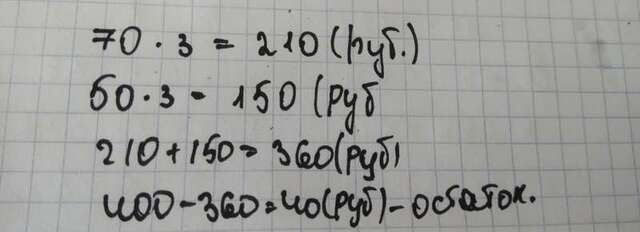 70 · 3 = 210 (руб.)
50 · 3 = 150 (руб
210 + 150 = 360 (руб)
400 - 360 = 40 (руб) - остаток.